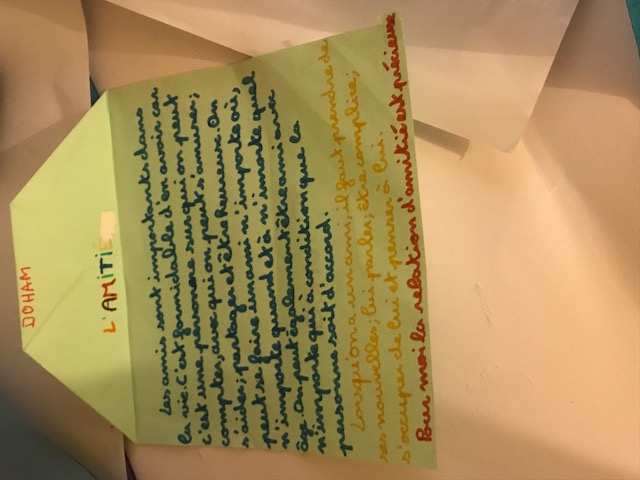 DOHAM
L'AMITIÉ
Les amis sont importants dans
la vie. C'est formidable d'en avoir car
c'est une personne sur qui on peut
compter, avec qui on peut s'amuser,
s'aider, partager et être heureux. On
peut se faire un ami n'importe où,
n'importe quand et à n'importe quel
âge. On peut également être ami avec
n'importe qui à condition que la
personne soit d'accord.
Lorsqu'on a un ami, il faut prendre de
ses nouvelles, lui parler, être complice,
s'occuper de lui et penser à lui.
Pour moi la relation d'amitié est précieuse